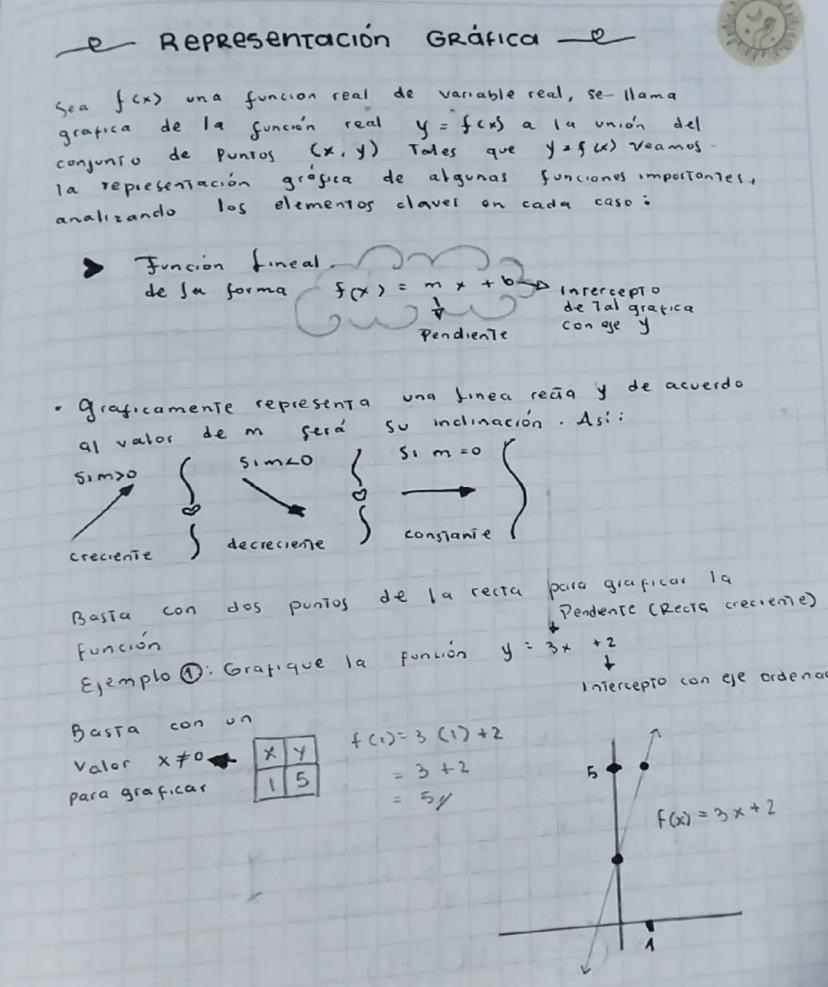 Representación Gráfica
Sea f(x) una funcion real de variable real, se llama
grafica de la función real y = f(x) a la unión del
conjunto de puntos (x, y) Tales que y = f(x) veamos
la representación gráfica de algunas funciones importantes,
analizando los elementos claves en cada caso:
Función Lineal
de la forma f(x) = m x + b → Intercepto
de Tal grafica
con eje y
Pendiente
• Graficamente representa una linea recta y de acuerdo
al valor de m será su inclinación. Así:
Si m>0 Si m<0 Si m=0
creciente decreciente constante
Basta con dos puntos de la recta para graficar la
función
Pendente (Recta creciente)
Ejemplo ①: Grafique la función y = 3x + 2
Intercepto con eje ordena
Basta con un
valor x≠0
para graficar
x y
1 5
f(1) = 3 (1) + 2
= 3 + 2
= 5//
5
f(x) = 3x + 2
1